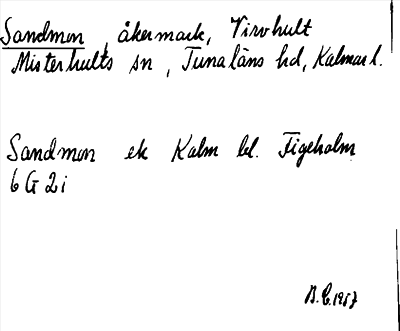 Sandmon, åkermark, Virvhult
Misterhults sn, Tunaläns hd, Kalmar l.
Sandmon ek Kalm bl. Figeholm
6 G 2 i
B.E. 1957